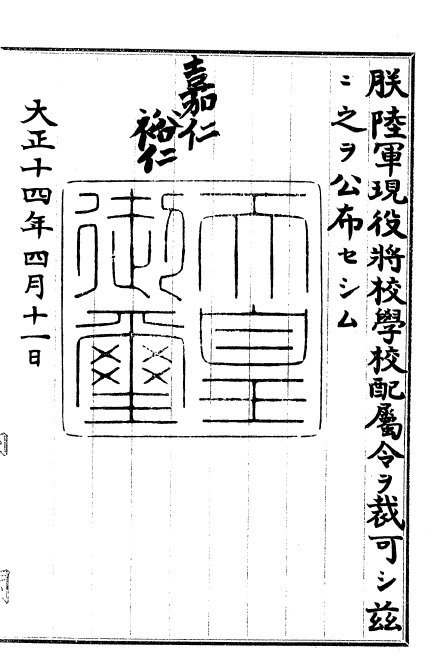 朕陸軍現役將校學校配屬令ヲ裁可シ茲
ニ之ヲ公布セシム
嘉仁
裕仁
天皇
御璽
大正十四年四月十一日